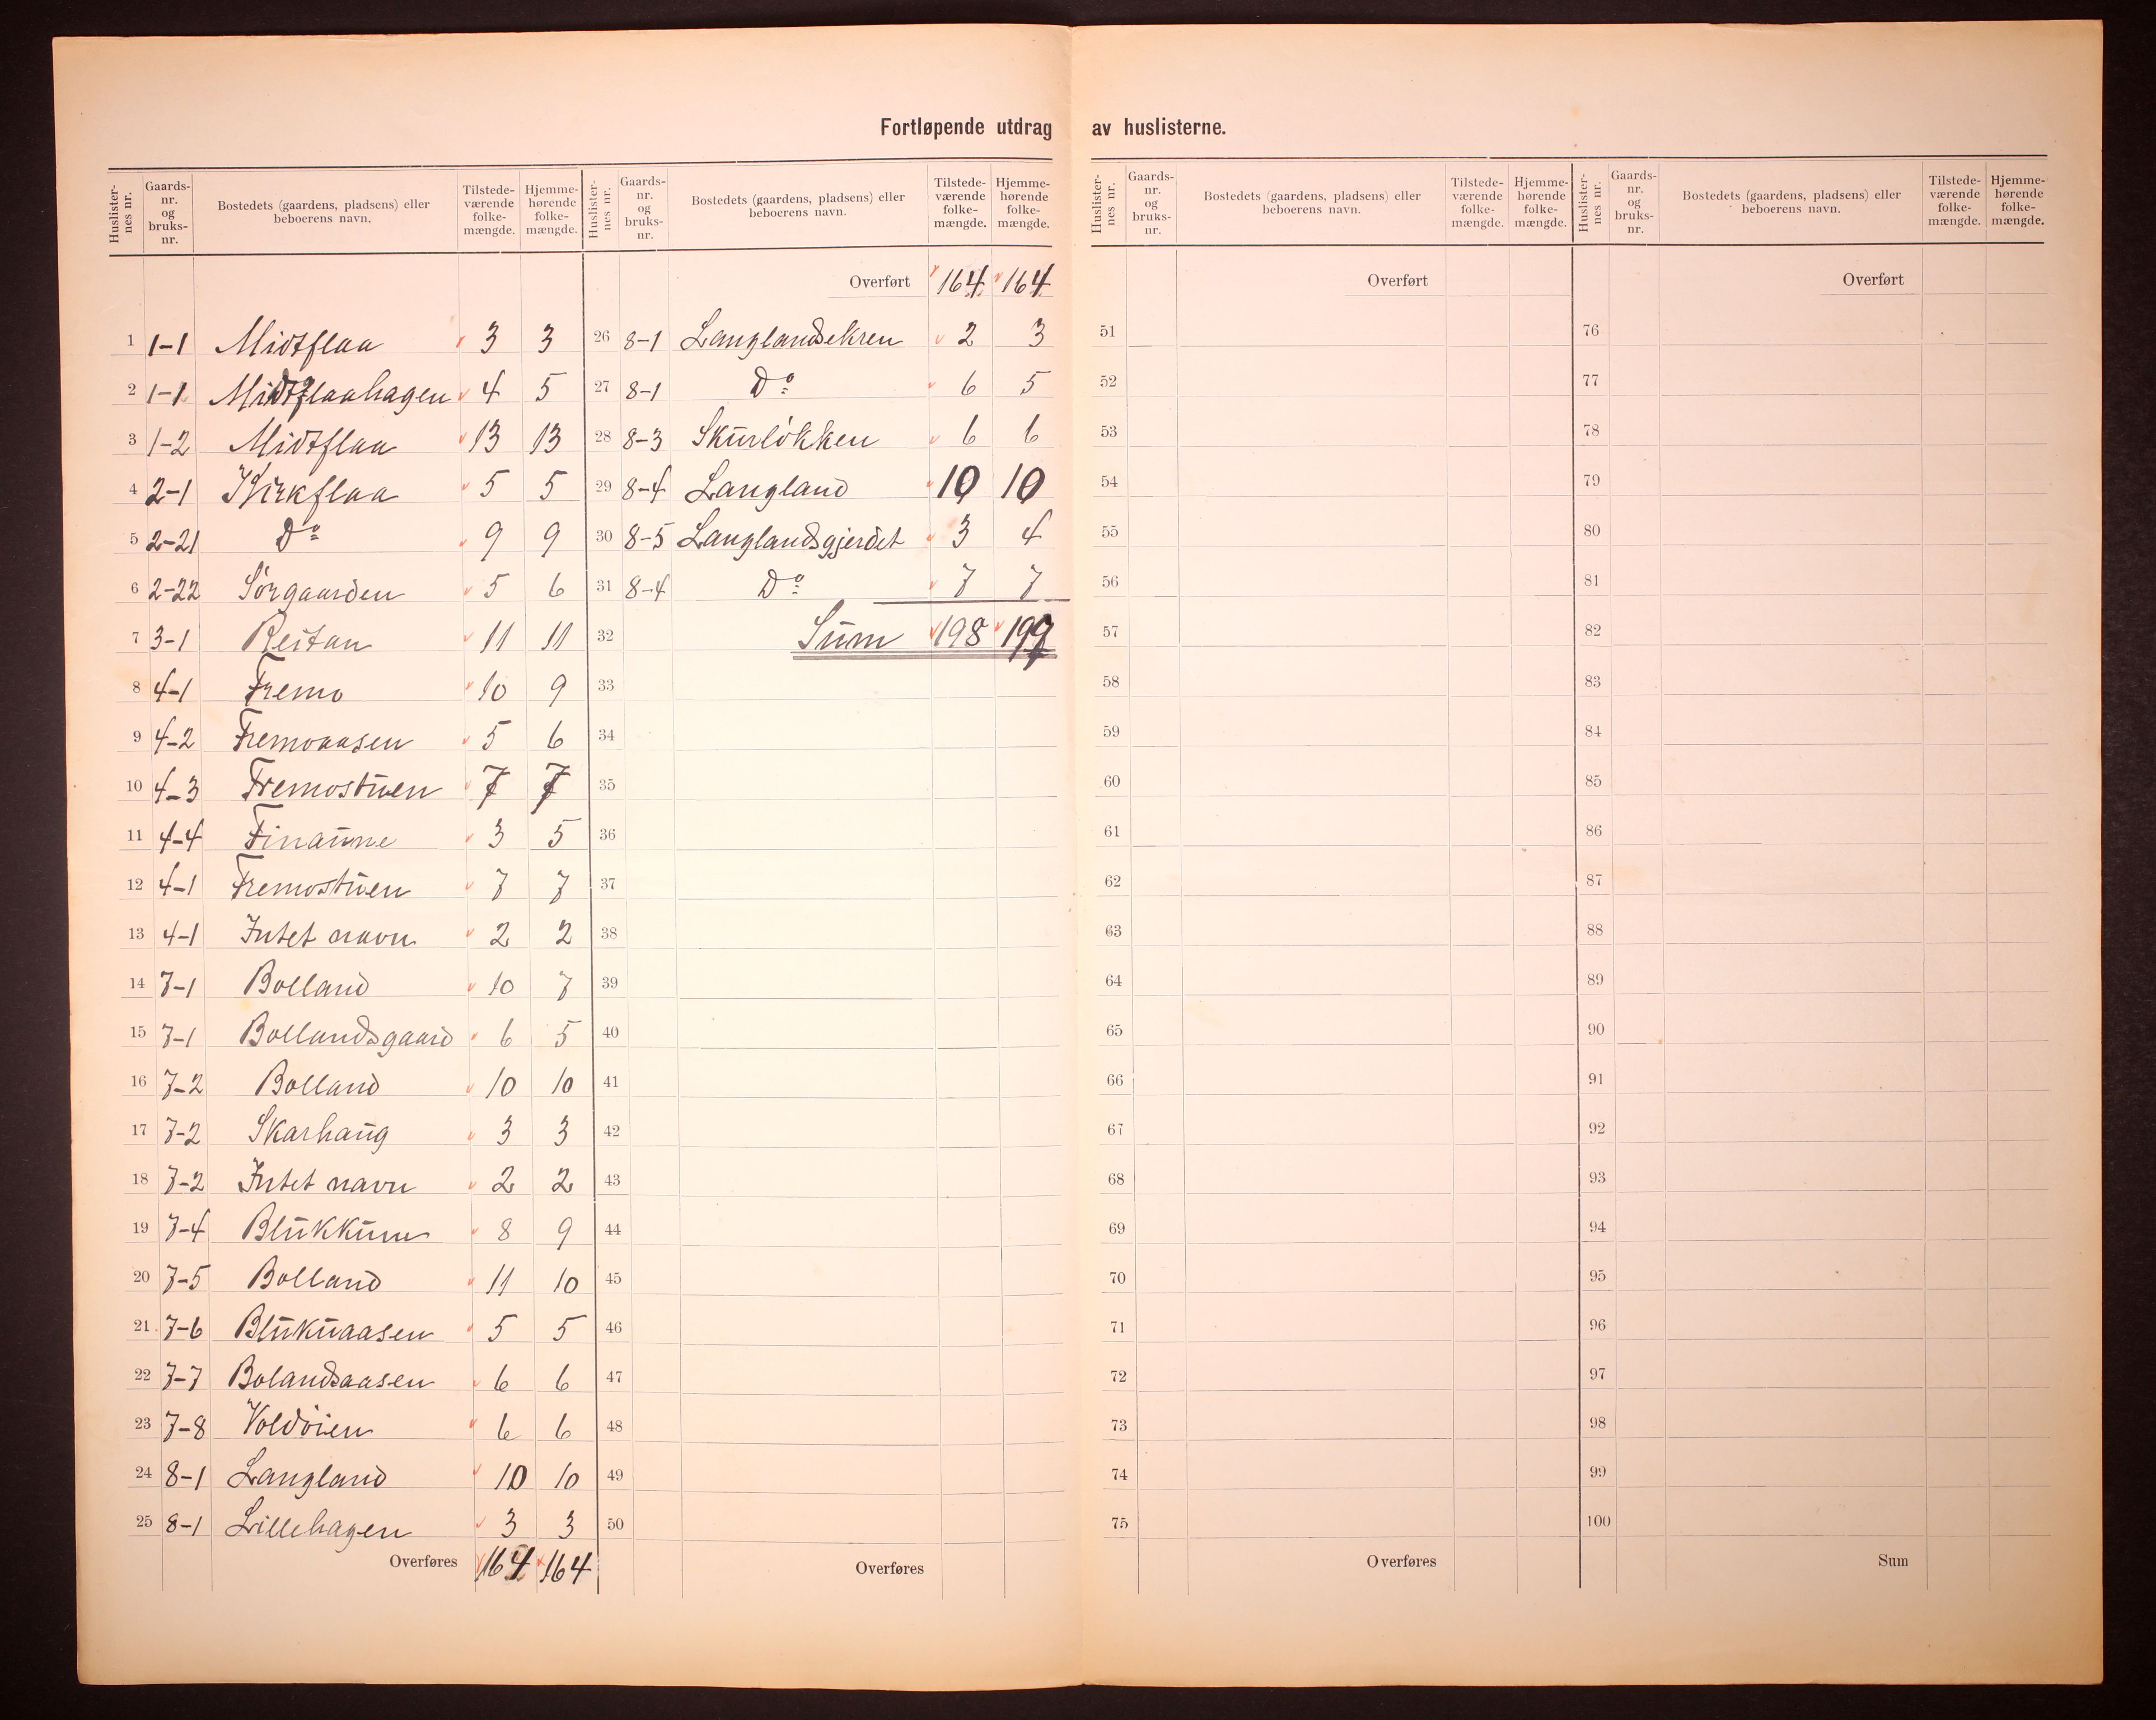 Fortløpende utdrag av huslisterne.
Huslister-nes nr. Gaards-nr. og bruks-nr. Bostedets (gaardens, pladsens) eller beboerens navn. Tilstede-værende folke-mængde. Hjemme-hørende folke-mængde.
1 1-1 Midtflaa 3 3
2 1-1 Midtflaahagen 4 5
3 1-2 Midtflaa 13 13
4 2-1 Kirkflaa 5 5
5 2-21 Do 9 9
6 2-22 Sörgaarden 5 6
7 3-1 Reitan 11 11
8 4-1 Fremo 10 9
9 4-2 Fremoaasen 5 6
10 4-3 Fremostuen 7 7
11 4-4 Finaunne 3 5
12 4-1 Fremostuen 7 7
13 4-1 Intet navn 2 2
14 7-1 Bolland 10 7
15 7-1 Bollandsgaard 6 5
16 7-2 Bolland 10 10
17 7-2 Skarhaug 3 3
18 7-2 Intet navn 2 2
19 7-4 Blukkum 8 9
20 7-5 Bolland 11 10
21 7-6 Blukuaasen 5 5
22 7-7 Bolandsaasen 6 6
23 7-8 Voldöien 6 6
24 8-1 Langland 10 10
25 8-1 Lillehagen 3 3
Overføres 164 164
Huslister-nes nr. Gaards-nr. og bruks-nr. Bostedets (gaardens, pladsens) eller beboerens navn. Tilstede-værende folke-mængde. Hjemme-hørende folke-mængde.
Overført 164 164
26 8-1 Langlandsekren 2 3
27 8-1 Do 6 5
28 8-3 Skurlökken 6 6
29 8-4 Langland 10 10
30 8-5 Langlandsgjerdet 3 4
31 8-4 Do 7 7
32 Sum 198 199
33
34
35
36
37
38
39
40
41
42
43
44
45
46
47
48
49
50
Overføres
Huslister-nes nr. Gaards-nr. og bruks-nr. Bostedets (gaardens, pladsens) eller beboerens navn. Tilstede-værende folke-mængde. Hjemme-hørende folke-mængde.
Overført
51
52
53
54
55
56
57
58
59
60
61
62
63
64
65
66
67
68
69
70
71
72
73
74
75
Overføres
Huslister-nes nr. Gaards-nr. og bruks-nr. Bostedets (gaardens, pladsens) eller beboerens navn. Tilstede-værende folke-mængde. Hjemme-hørende folke-mængde.
Overført
76
77
78
79
80
81
82
83
84
85
86
87
88
89
90
91
92
93
94
95
96
97
98
99
100
Sum